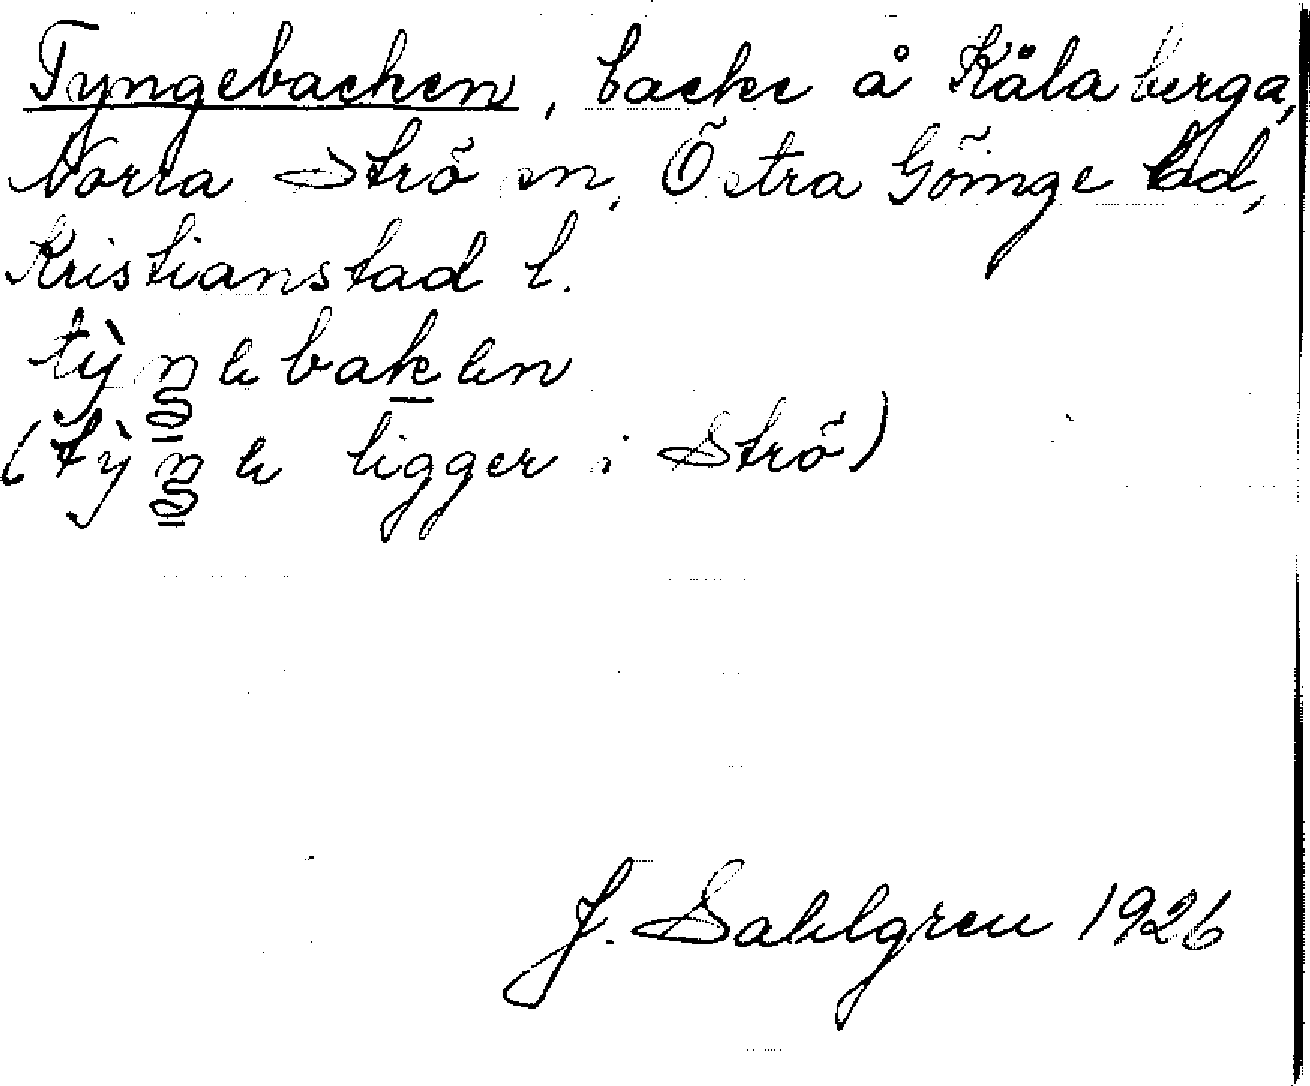 Tyngebacken, backe å Kälaberga,
Norra Strö sn, Östra Göinge hd,
Kristianstad l.
(ligger i Strö)
J. Sahlgren 1926